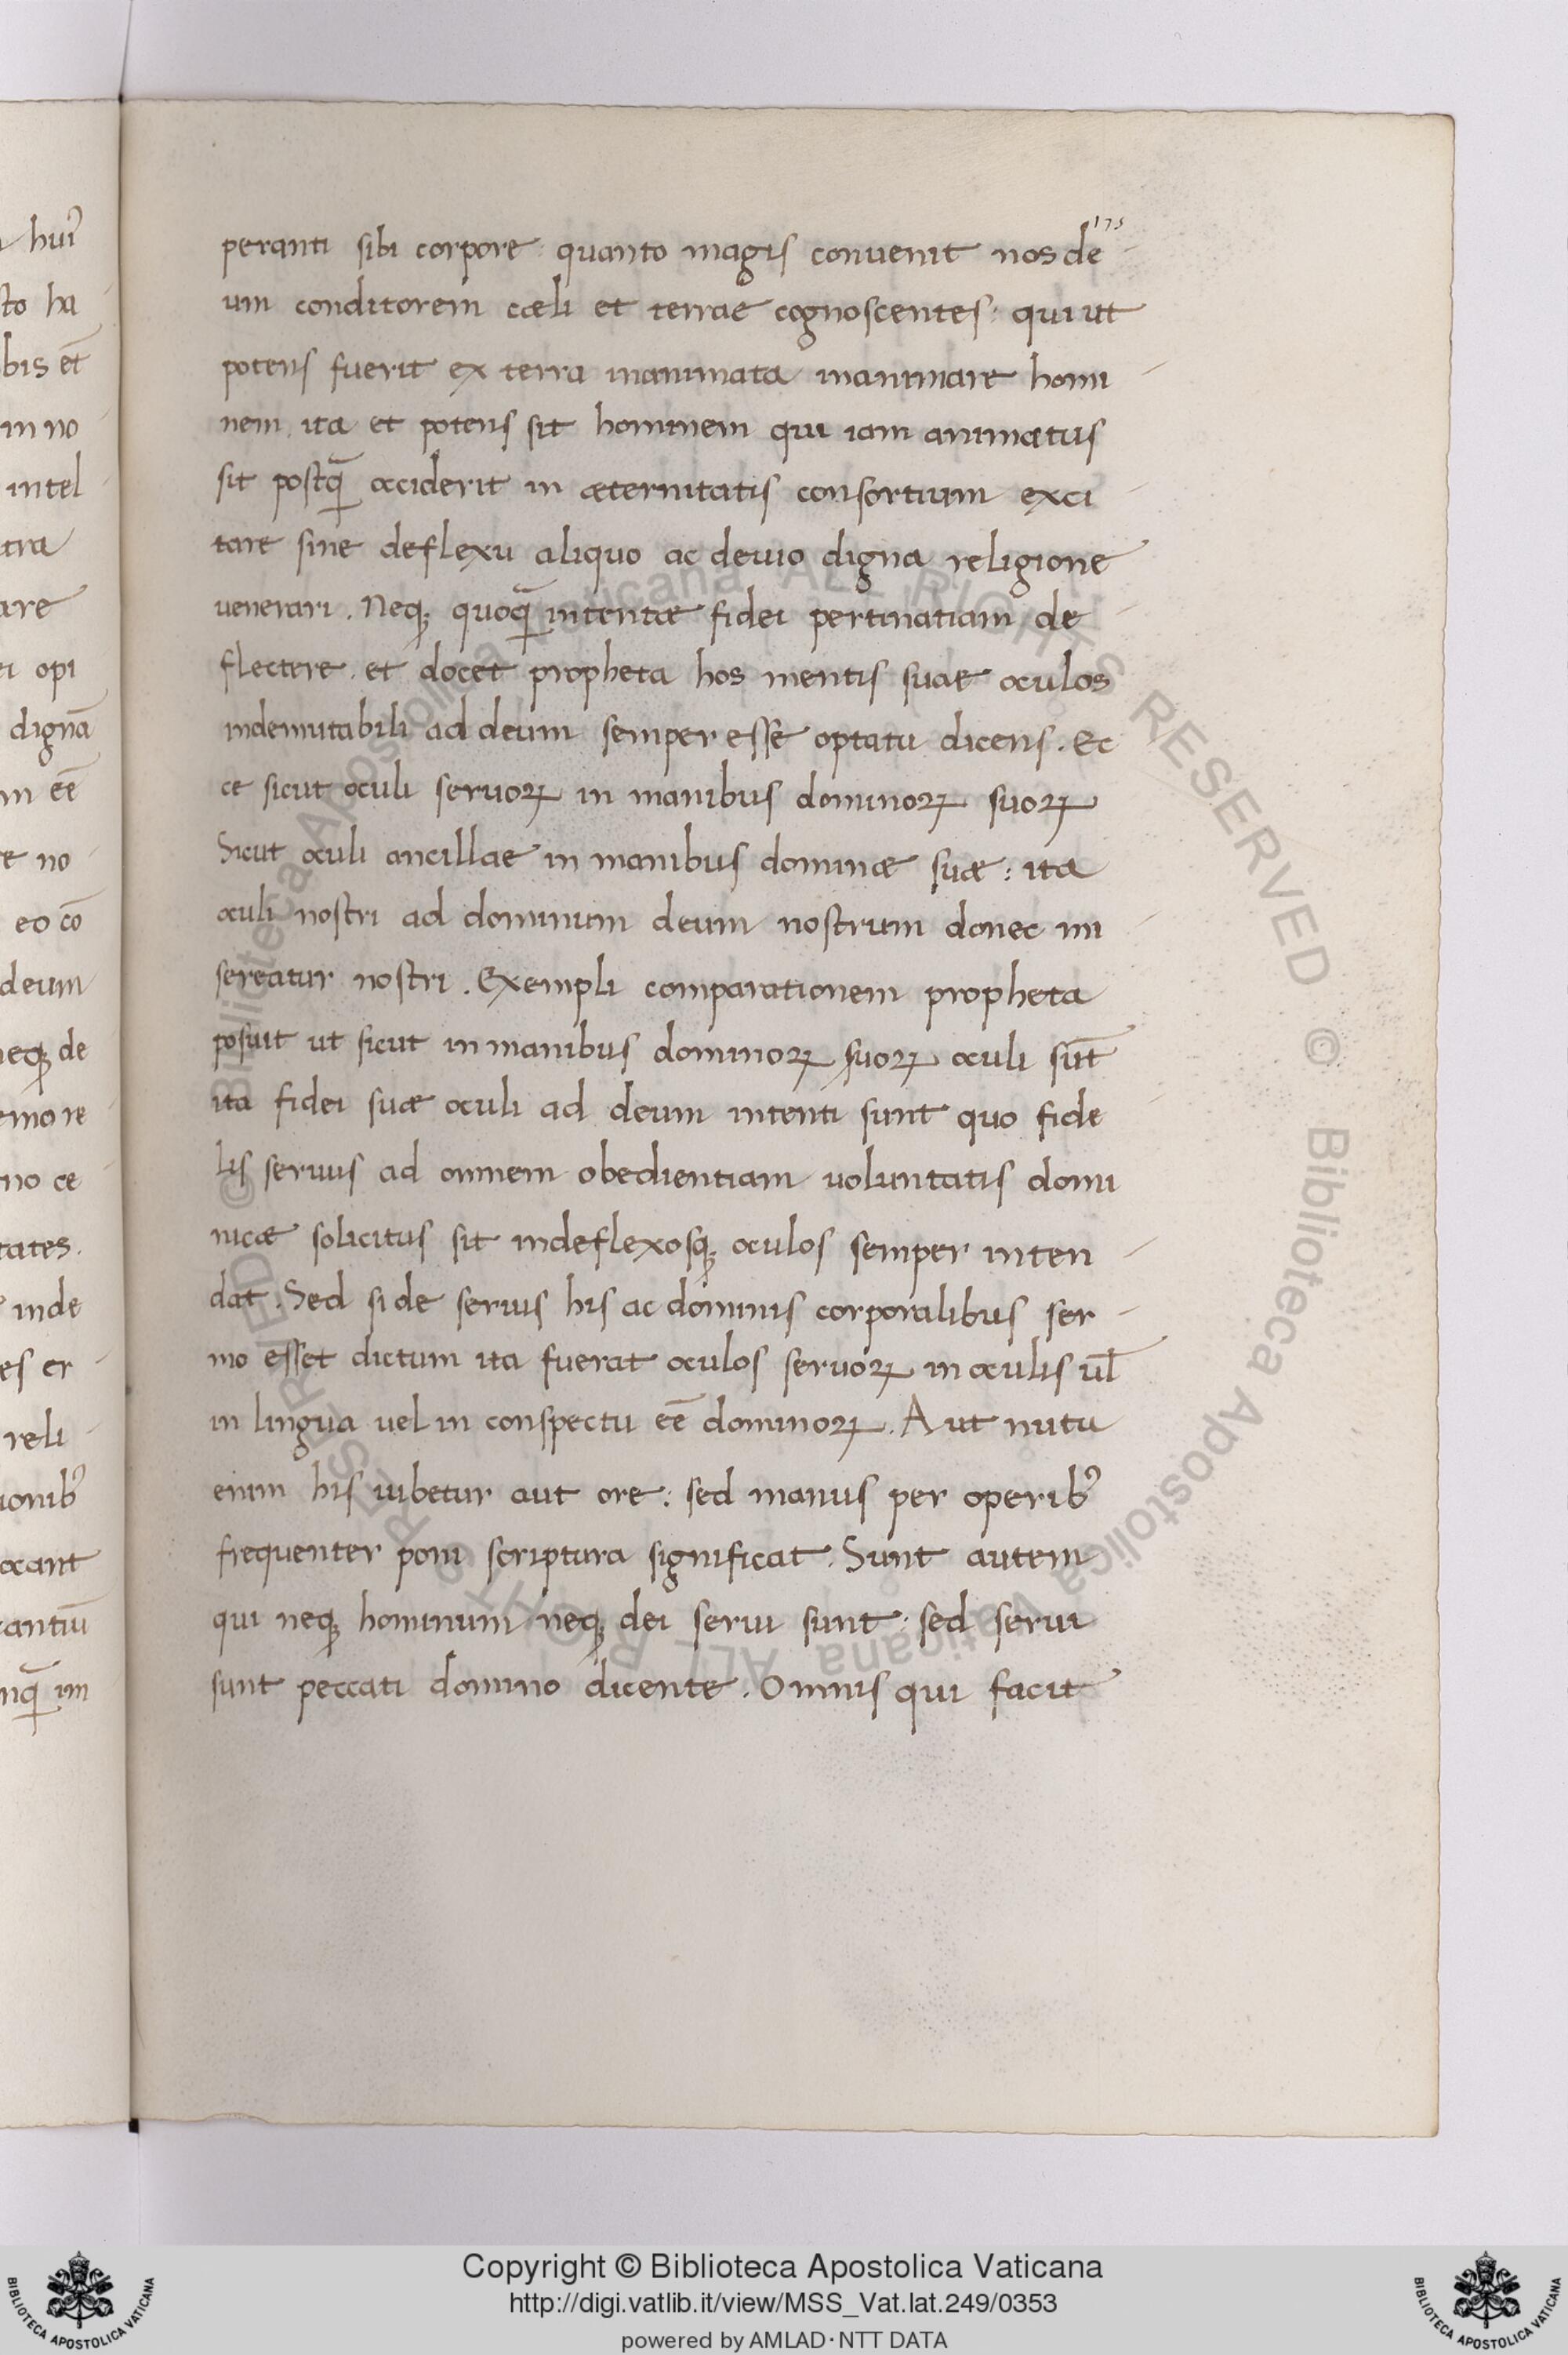 175
peranti sibi corpore: quanto magis conuenit nos de
um conditorem cæli et terrae cognoscentes: qui ut
potens fuerit ex terra inanimata inanimare homi
nem. ita et potens sit hominem qui iam animatus
sit postq̃ occiderit in æternitatis consortium exci
tare sine deflexu aliquo ac deuio digna religione
uenerari. Neq; quoq̃ intentæ fidei pertinatiam de
flectere. et docet propheta hos mentis suae oculos
indemutabili ad deum semper esse optatu dicens. Ec
ce sicut oculi seruoꝝ in manibus dominoꝝ suoꝝ
Sicut oculi ancillae in manibus dominæ suæ: ita
oculi nostri ad dominum deum nostrum donec mi
sereatur nostri. Exempli comparationem propheta
posuit ut sicut in manibus dominoꝝ suoꝝ oculi sūt
ita fidei suæ oculi ad deum intenti sunt quo fide
lis seruus ad omnem obedientiam uoluntatis domi
nicæ solicitus sit indeflexosq; oculos semper inten
dat. Sed si de seruis his ac dominis corporalibus ser
mo esset dictum ita fuerat oculos seruoꝝ in oculis ul̄
in lingua uel in conspectu eē dominoꝝ. Aut nutu
enim his iubetur aut ore: sed manus per operib᾽
frequenter poni scriptura significat. Sunt autem
qui neq; hominum neq; dei serui sunt: sed serui
sunt peccati domino dicente. Omnis qui facit
Copyright © Biblioteca Apostolica Vaticana
http://digi.vatlib.it/view/MSS_Vat.lat.249/0353
powered by AMLAD·NTT DATA